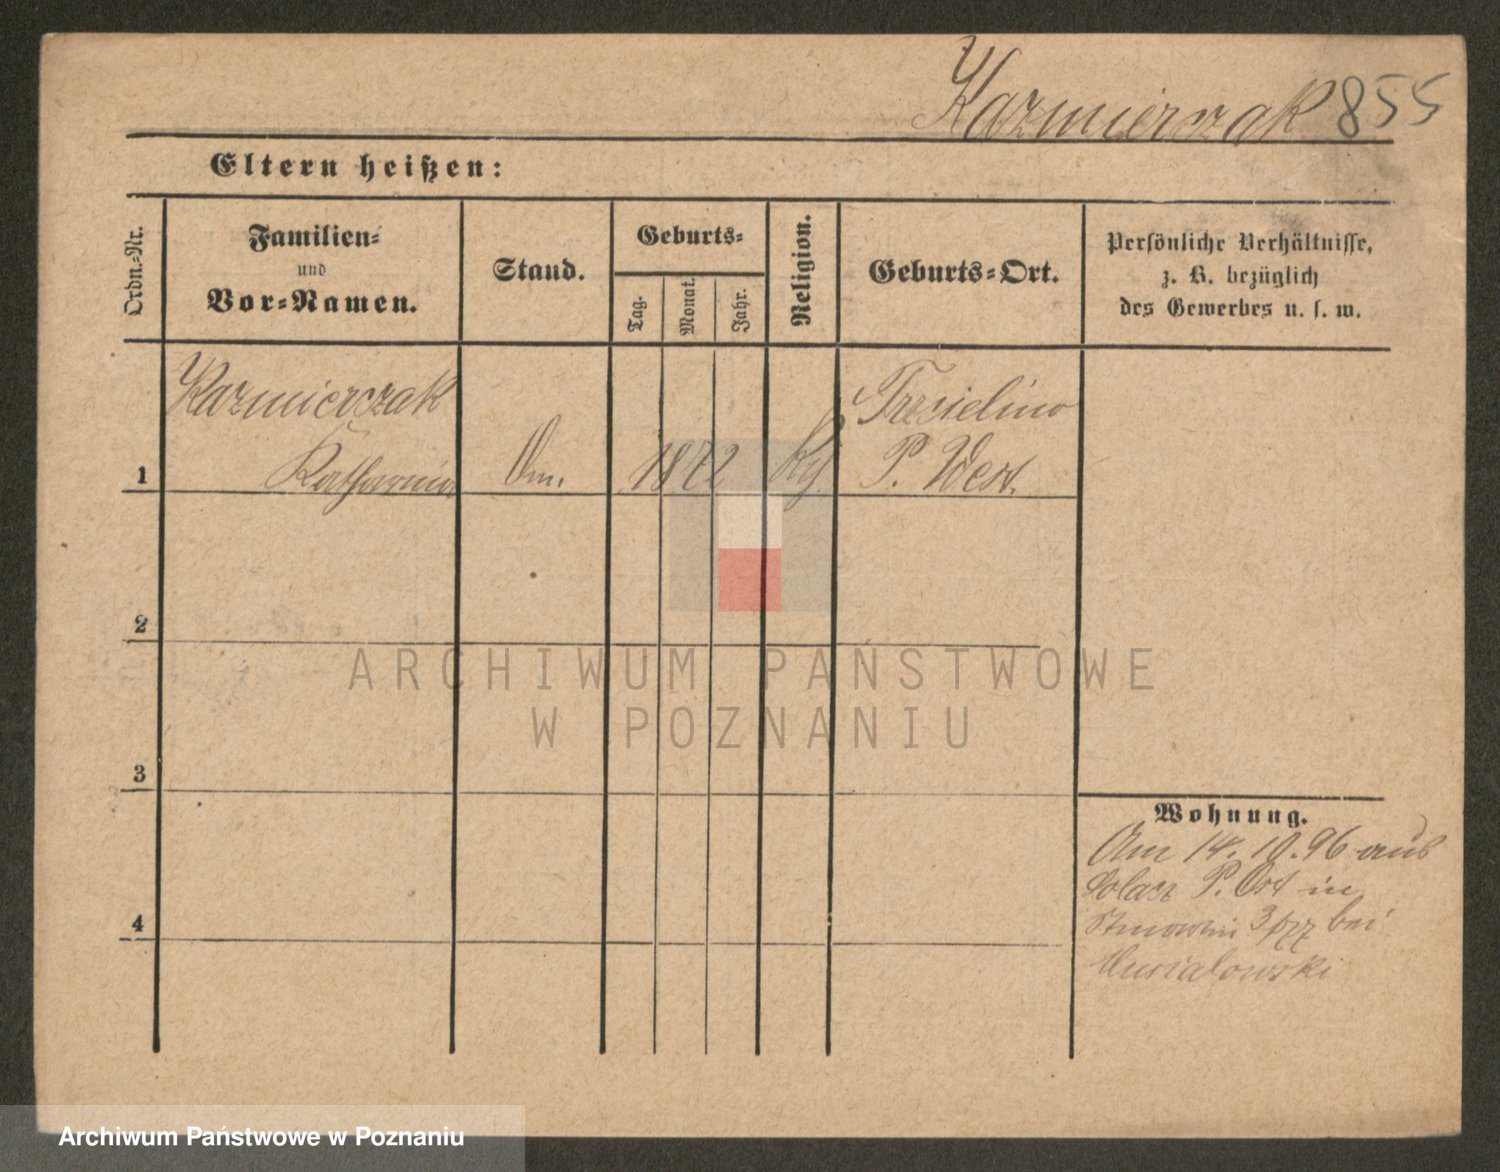 Kazmierczak 855
Eltern heißen:
Ordn.-Nr.
Familien-
und
Vor-Namen.
Stand.
Geburts-
Tag.
Monat.
Jahr.
Religion.
Geburts-Ort.
Persönliche Verhältnisse,
z. B. bezüglich
des Gewerbes u. s. w.
1
Kazmierczak
Katharina
1872
Trzcielino
P. West.
2
3
4
Wohnung.
Am 14. 10. 96 aus
Solacz P. Ost in
bei
Musialowski
ARCHIWUM PAŃSTWOWE
W POZNANIU
Archiwum Państwowe w Poznaniu